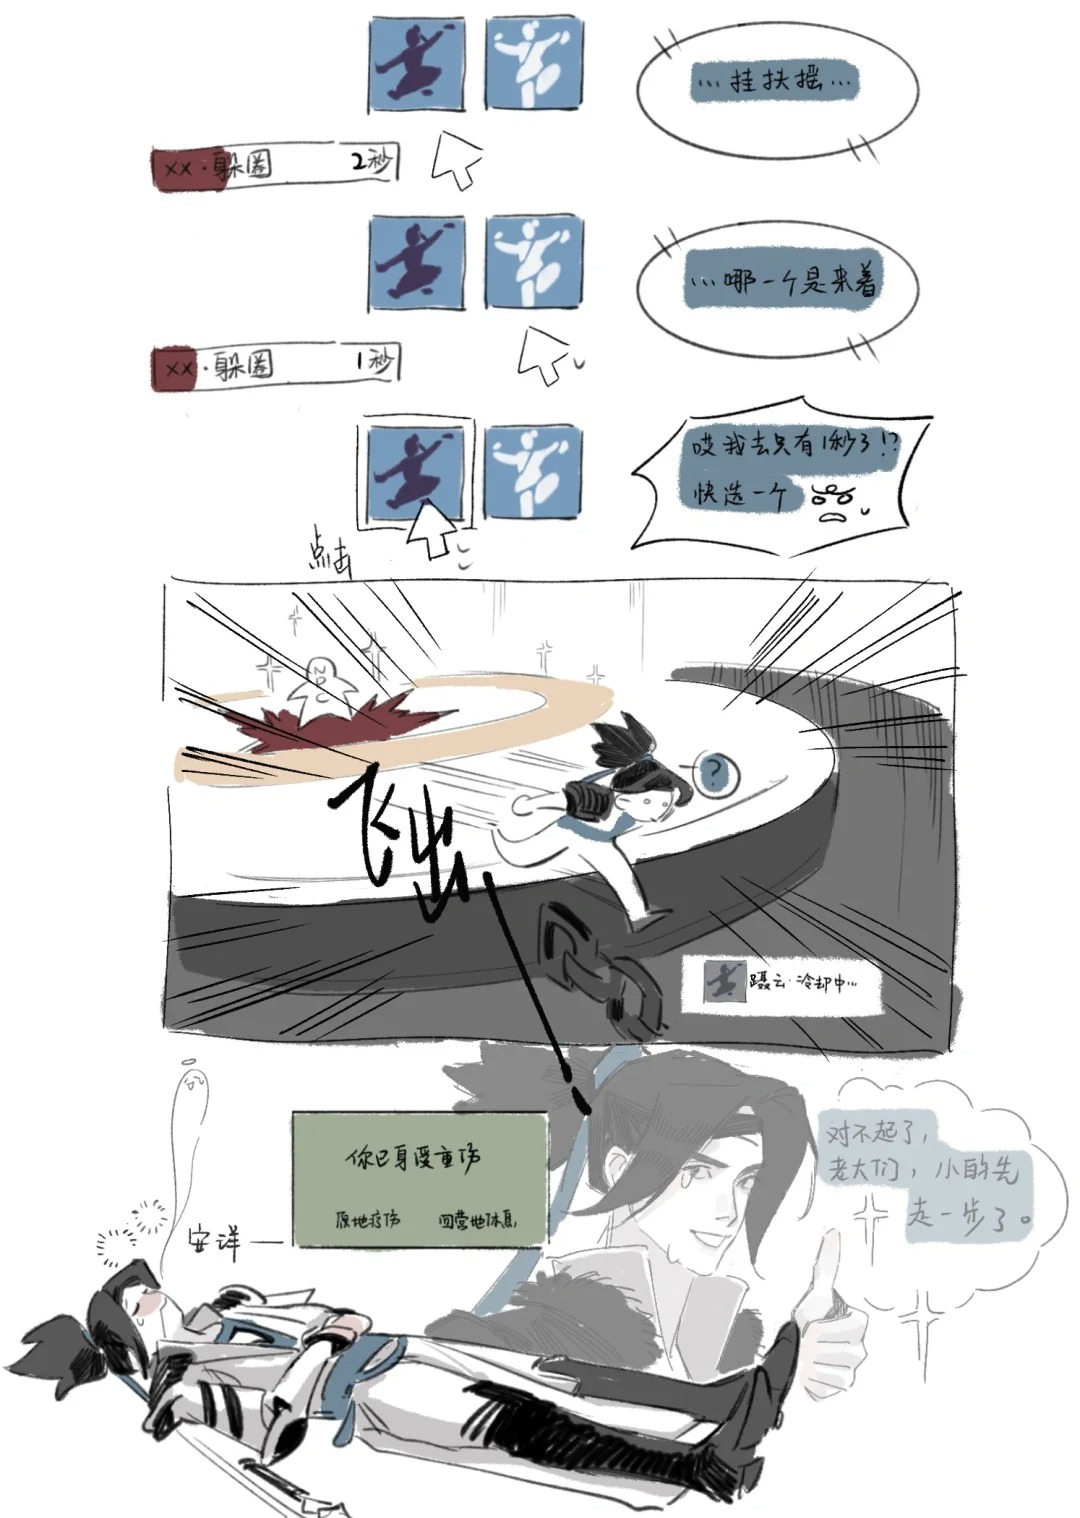 …挂扶摇…
XX·躲圈 2秒
…哪一个是来着
XX·躲圈 1秒
哎我去只有1秒了!?
快选一个
点击
NPC
?
飞出
蹑云·冷却中…
你已身受重伤
原地疗伤 回营地休息
安详
对不起了,
老大们,小的先
走一步了。